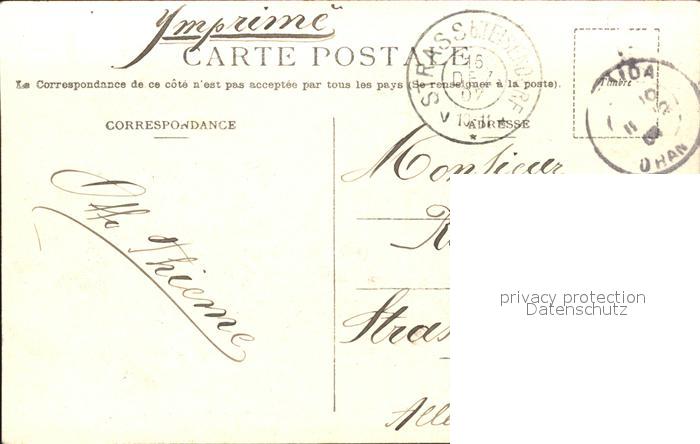 Imprimé
CARTE POSTALE
La Correspondance de ce côté n'est pas acceptée par tous les pays (Se renseigner à la poste).
CORRESPONDANCE
ADRESSE
Timbre
STRASS
15
DEZ
07
SAIDA
ORAN
Monsieur
Otto Thieme
Stras
Alle
privacy protection
Datenschutz